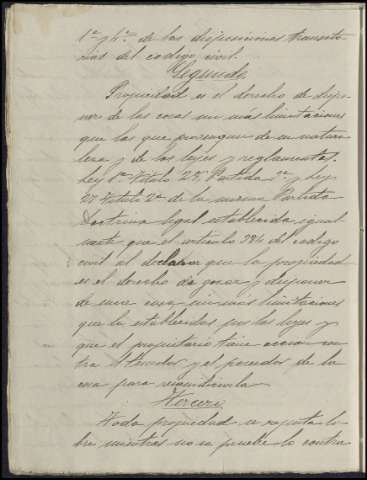 1ª y 4ª de las disposiciones transito-
rias del codigo civil.
Segundo
Propiedad es el derecho de dispo-
ner de las cosas sin más limitaciones
que las que provengan de su natura-
leza y de las leyes y reglamentos.
Ley 1ª Titulo 28, Partida 3ª y Ley
27 Titulo 2º de la misma Partida
Doctrina legal establecida igual
mente que el articulo 384 del codigo
civil al declarar que la propiedad
es el derecho de gozar y disponer
de una cosa sin más limitaciones
que las establecidas por las leyes y
que el propietario tiene accion con-
tra el tenedor y el poseedor de la
cosa para reivindicarla
Tercero
Toda propiedad se reputa li-
bre mientras no se pruebe lo contra-